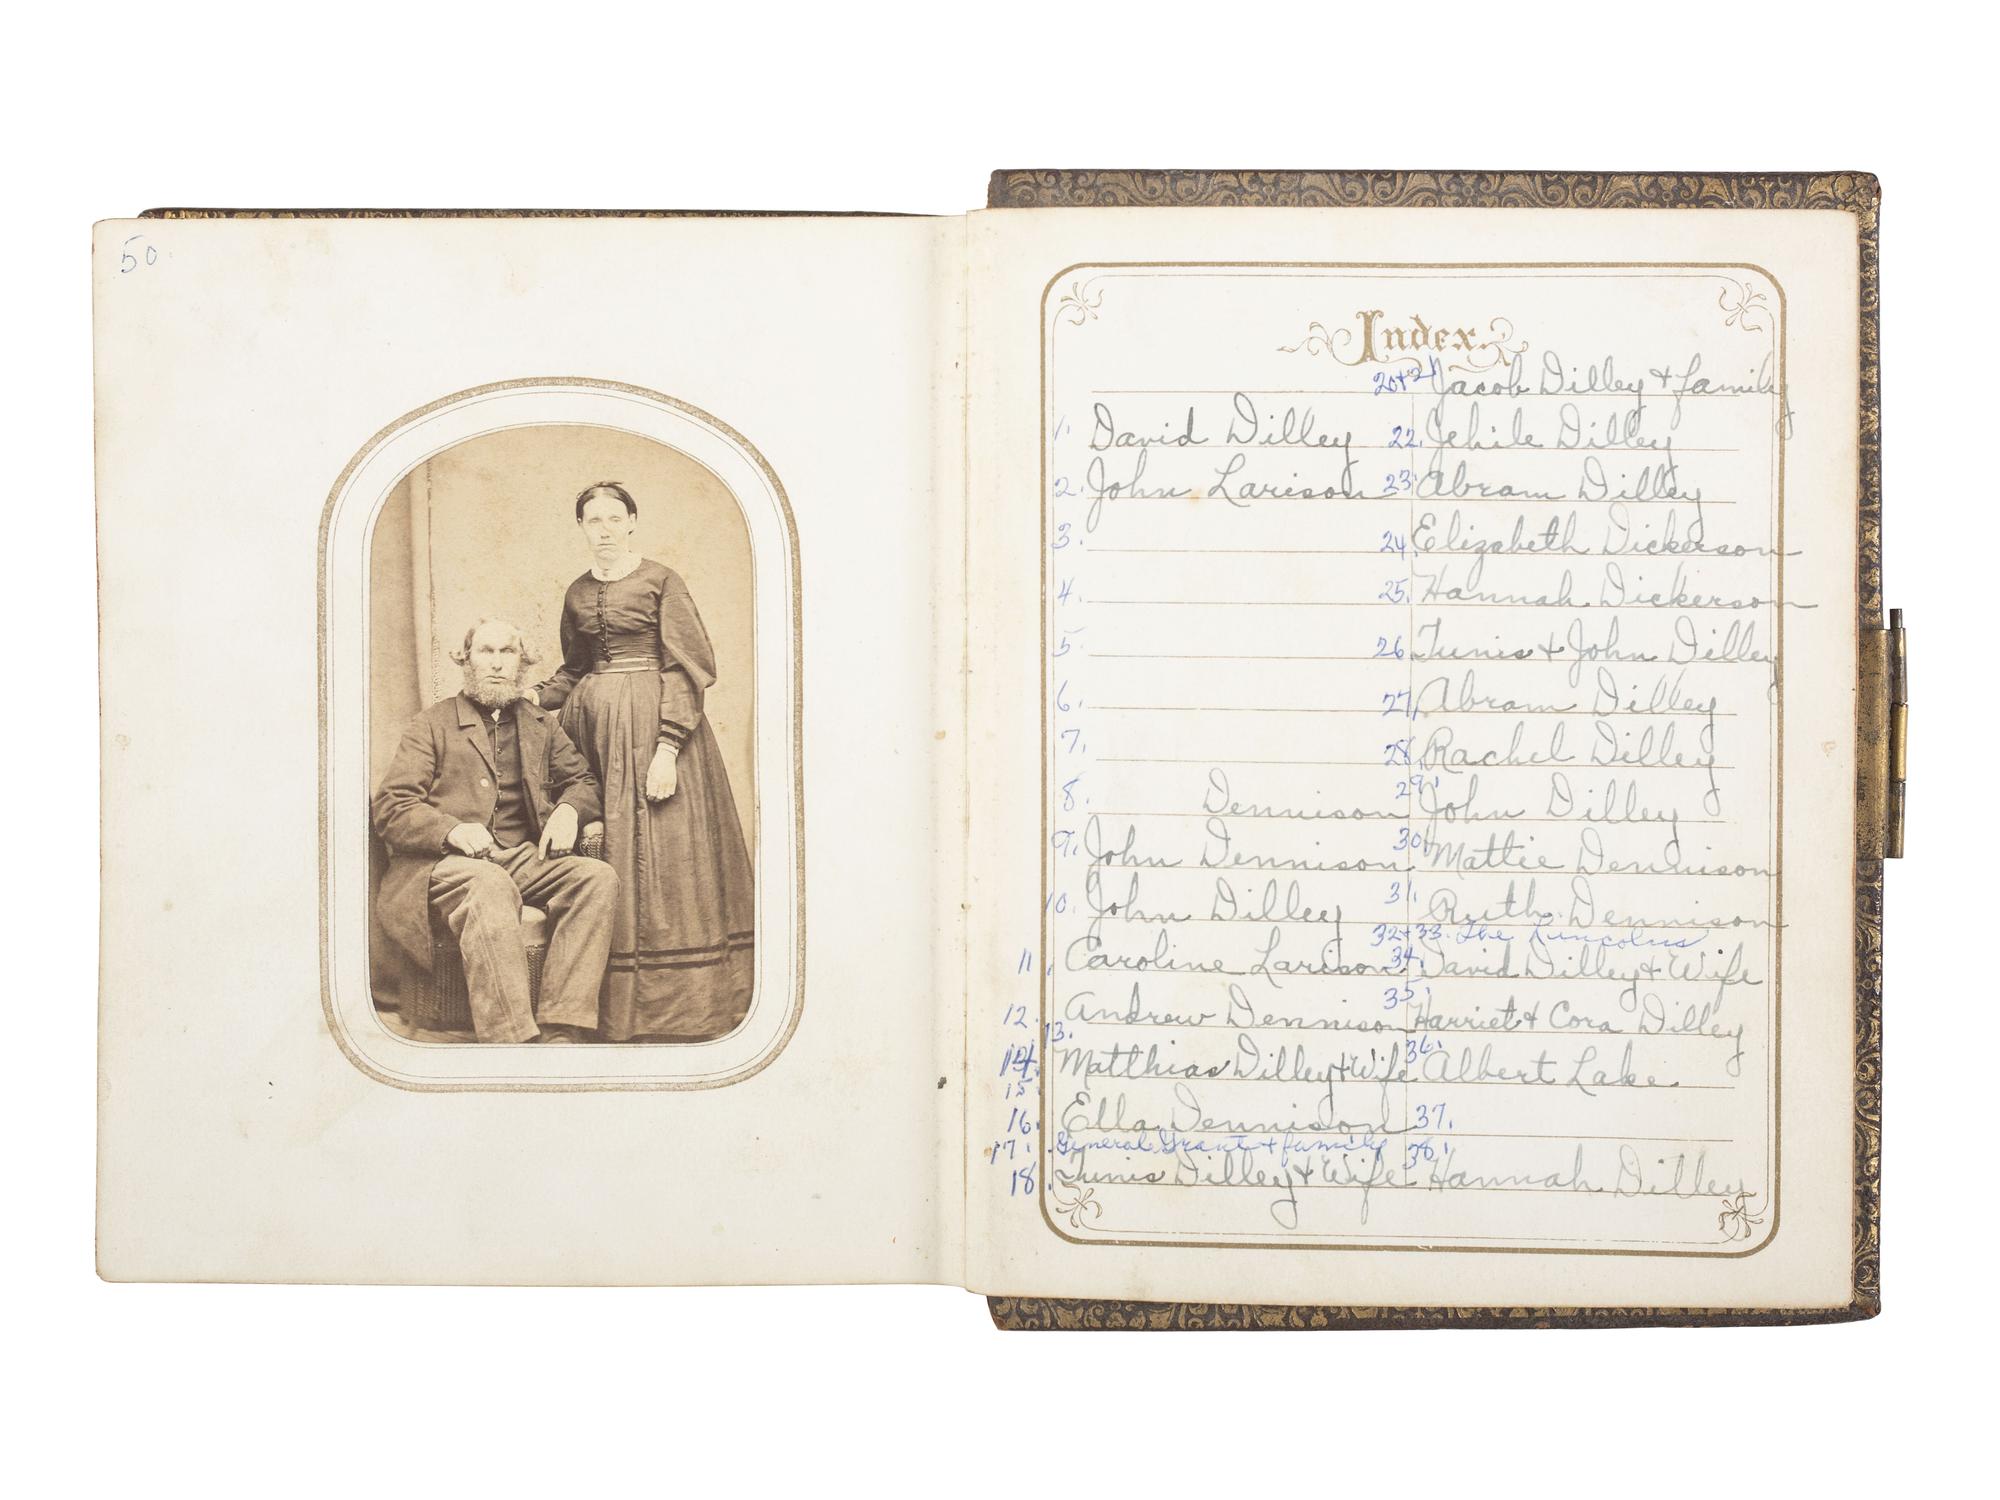 50.
Index.
20+21 Jacob Dilley & family
1. David Dilley
2. John Larison
3.
4.
5.
6.
7.
8. Dennison
9. John Dennison
10. John Dilley
11. Caroline Larison
12. Andrew Dennison
13.
14. Matthias Dilley & Wife
15
16. Ella Dennison
17. General Grant & family
18. Tunis Dilley & Wife
22. Jehile Dilley
23. Abram Dilley
24. Elizabeth Dickerson
25. Hannah Dickerson
26 Tunis & John Dilley
27. Abram Dilley
28. Rachel Dilley
29. John Dilley
30. Mattie Dennison
31. Ruth Dennison
32+33. The Lincolns
34. David Dilley & Wife
35. Harriet & Cora Dilley
36. Albert Lake
37.
38. Hannah Dilley